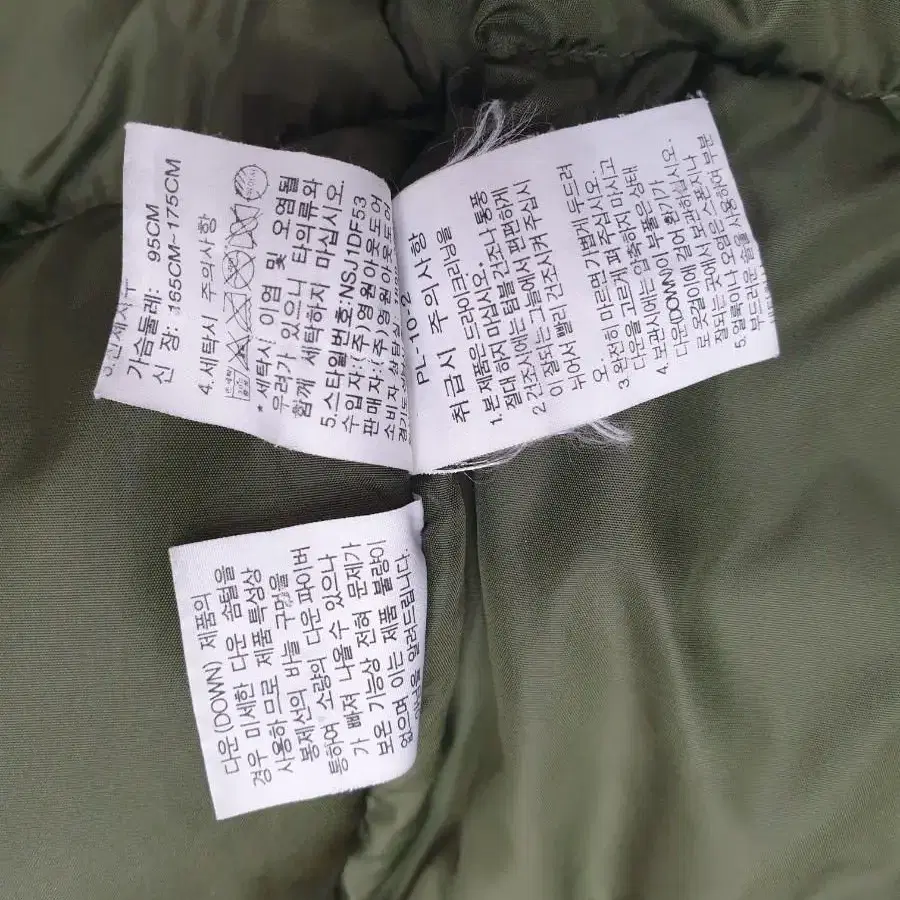 가슴둘레: 95CM
신 장: 165CM-175CM
4.세탁시 주의사항
* 세탁시 이염 및 오염될
우려가 있으니 타의류와
함께 세탁하지 마십시오.
5.스타일번호:NSJ1DF53
수입자:(주)영원아웃도어
판매자:(주)영원아웃도어
소비자 상담실
PL-10-2
취급시 주의사항
1. 본 제품은 드라이크리닝을
절대 하지 마십시오.
2. 건조시에는 텀블 건조나 통풍
이 잘되는 그늘에서 편편하게
뉘어서 빨리 건조시켜 주십시
오.
3. 완전히 마르면 가볍게 두드려
다운을 고르게 펴 주십시오.
4. 보관시에는 압축하지 마시고
다운(DOWN)이 부풀은 상태
로 옷걸이에 걸어 환기가
잘되는 곳에서 보관하십시오.
5. 얼룩이나 오염은 스폰지나
부드러운 솔을 사용하여 부분
다운(DOWN) 제품의
경우 미세한 다운 솜털을
사용하므로 제품 특성상
봉제선의 바늘 구멍을
통하여 소량의 다운 파이버
가 빠져 나올수 있으나
보온 기능상 전혀 문제가
없으며 이는 제품 불량이
아님을 알려드립니다.